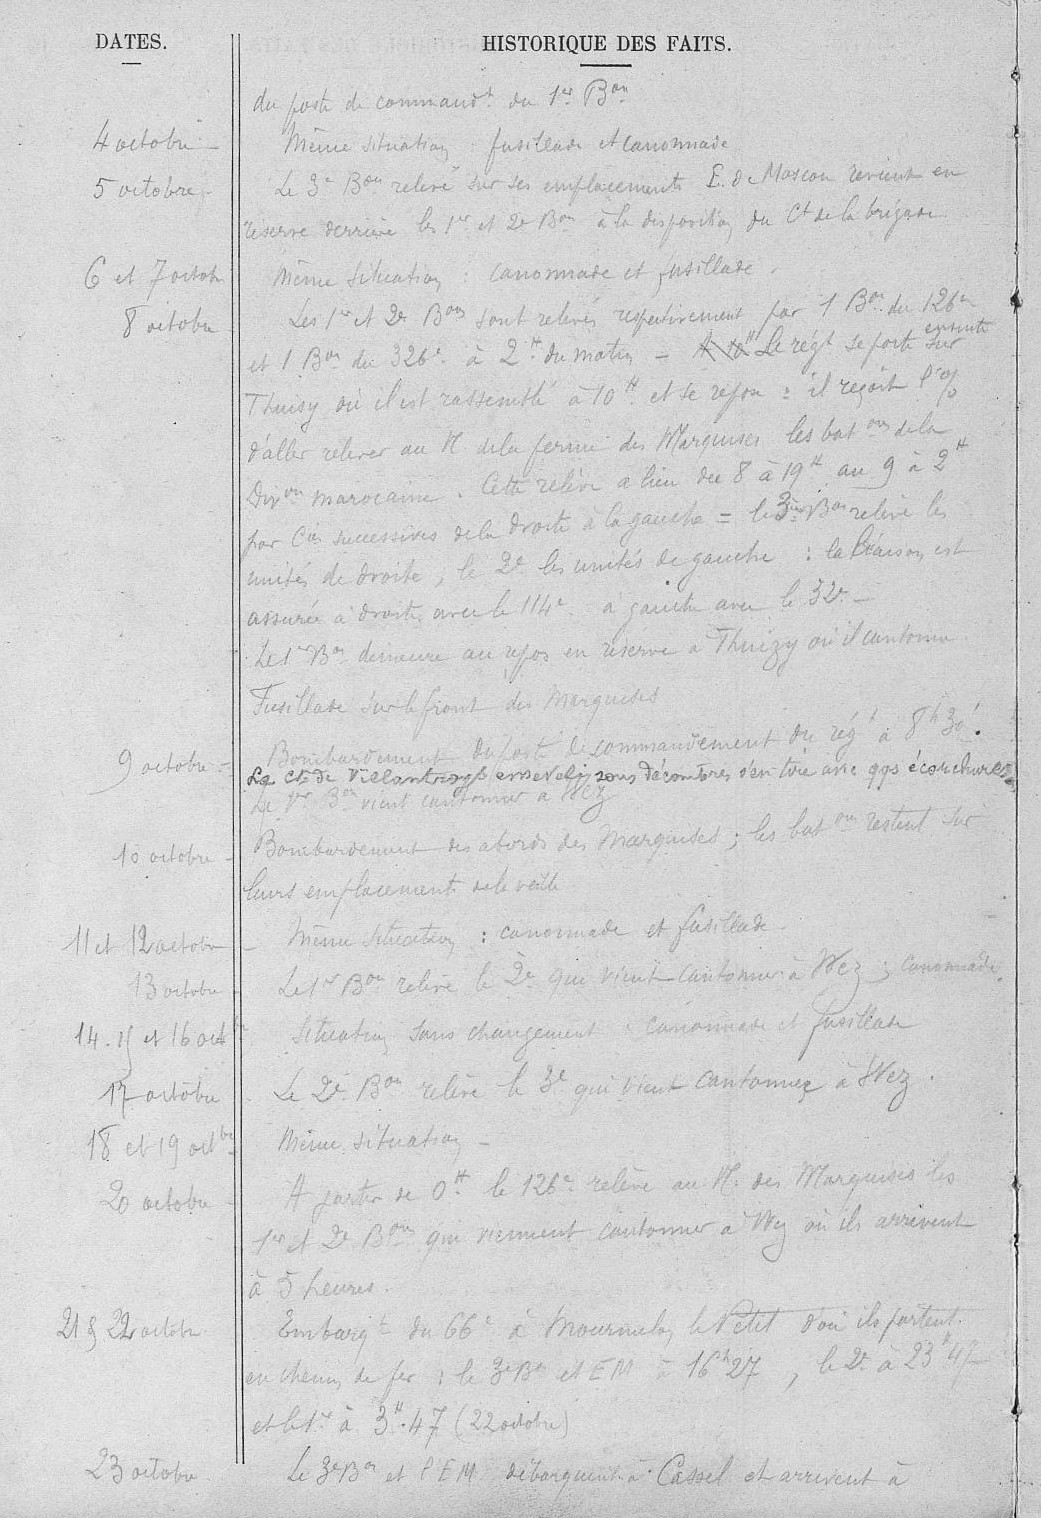 DATES. HISTORIQUE DES FAITS.
du poste de commandt du 1er Bon
4 octobre – Même situation fusillade et canonnade
5 octobre – Le 3e Bon relevé sur ses emplacements E. de Moscou revient en
réserve derrière les 1er et 2e Bon à la disposition du Ct de la brigade
6 et 7 octobre Même situation : canonnade et fusillade.
8 octobre Les 1er et 2e Bons sont relevés respectivement par 1 Bon du 126e
et 1 Bon du 326e à 2H du matin – Le régt se porte ensuite sur
Thuisy où il est rassemblé à 10H et se repose : il reçoit l'
d'aller relever au N. de la ferme des Marquises les batons de la
Divon marocaine. Cette relève a lieu du 8 à 19H au 9 à 2H
par Cies successives de la droite à la gauche = le 3e Bon relève les
unités de droite, le 2e les unités de gauche : la liaison est
assurée à droite avec le 114e à gauche avec le 32e –
Le 1er Bon demeure au repos en réserve à Thuizy où il cantonne
Fusillade sur le front des Marquises
9 octobre – Bombardement du poste de commandement du régt à 8h30'.
Le Ct de enseveli sous décombres s'en tire avec qqs écorchures
Le 1er Bon vient cantonner à Wez
10 octobre – Bombardement des abords des Marquises ; les batons restent sur
leurs emplacements de la veille
11 et 12 octobre – Même situation : canonnade et fusillade.
13 octobre Le 1er Bon relève le 2e qui vient cantonner à Wez ; canonnade.
14. 15 et 16 octbre Situation sans changement : canonnade et fusillade
17 octobre Le 2e Bon relève le 3e qui vient cantonner à Wez.
18 et 19 octbre Même situation –
20 octobre – A partir de 0H le 126e relève au N. des Marquises les
1er et 2e Bons qui viennent cantonner à Wez où ils arrivent
à 5 heures.
21 & 22 octobre Embarqt du 66e à Mourmelon le Petit d'où ils partent
en chemin de fer : le 3e Bon et EM à 16h27, le 2e à 23H47
et le 1er à 3H.47 (22 octobre)
23 octobre Le 3e Bon et l'EM débarquent à Cassel et arrivent à